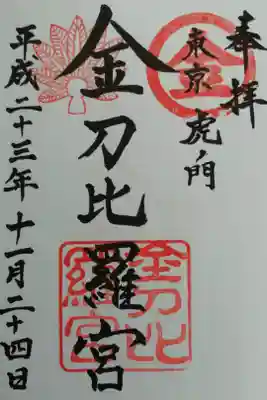 奉拝
東京虎ノ門
金刀比羅宮
金刀比羅宮
平成二十三年十一月二十四日